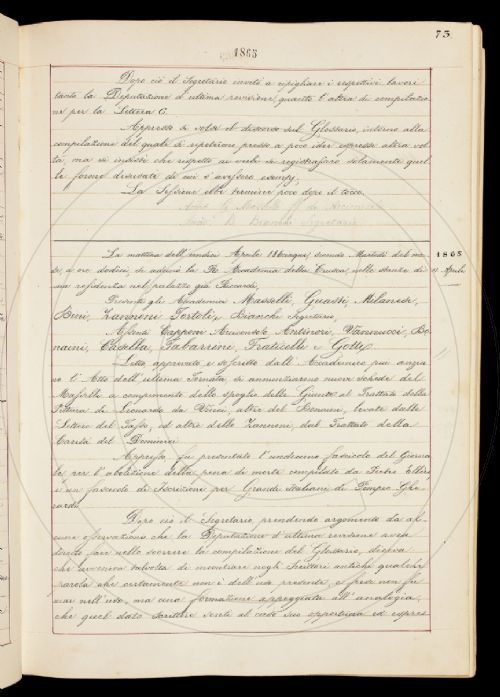 73.
1865
Dopo ciò il Segretario invitò a ripigliare i rispettivi lavori
tanto la Deputazione d'ultima revisione quanto l'altra di compilazio
ne per la Lettera C.
Appresso si volse il discorso sul Glossario, intorno alla
compilazione del quale si ripeterono presso a poco idee espresse altra vol
ta, ma si insistè che rispetto ai verbi si registrassero solamente quel
le forme disusate di cui s'avessero esempj.
La Sessione ebbe termine poco dopo il tocco.
Segretario
1865
11 Aprile
La mattina dell'undici Aprile 1865, secondo Martedì del me
se, a ore dodici, si adunò la R. Accademia della Crusca, nelle stanze di
sua residenza nel palazzo già Riccardi.
Presenti gli Accademici Masselli, Guasti, Milanesi,
Bini, Zannoni Tortoli, Bianchi Segretario,
Assenti Capponi Arciconsolo Antinori, Vannucci, Bo
naini, Casella, Tabarrini, Fraticelli e Gotti.
Letto, approvato e soscritto dall'Accademico più anzia
no l'Atto dell'ultima Tornata, si annunziarono nuove schede del
Masselli a compimento dello spoglio delle Giunte al Trattato della
Pittura di Leonardo da Vinci, altre del levate dalle
Lettere del Tasso, ed altre dello Zannoni, dal Trattato della
Carità del
Appresso fu presentato l'undecimo fascicolo del Giorna
le per l'abolizione della pena di morte compilato da Pietro Ellero,
e un fascicolo di Iscrizioni per Grandi Italiani di Tempio Ghe
rardi.
Dopo ciò il Segretario prendendo argomento da al
cune osservazioni che la Deputazione d'ultima revisione aveva
dovuto fare nello scorrere la compilazione del Glossario, diceva
che avveniva talvolta di incontrare negli Scrittori antichi qualche
parola che certamente non è dell'uso presente, e forse non fu
mai nell'uso, ma una formazione appoggiata all'analogia,
che quel dato Scrittore sentì al caso suo opportuna ed espres